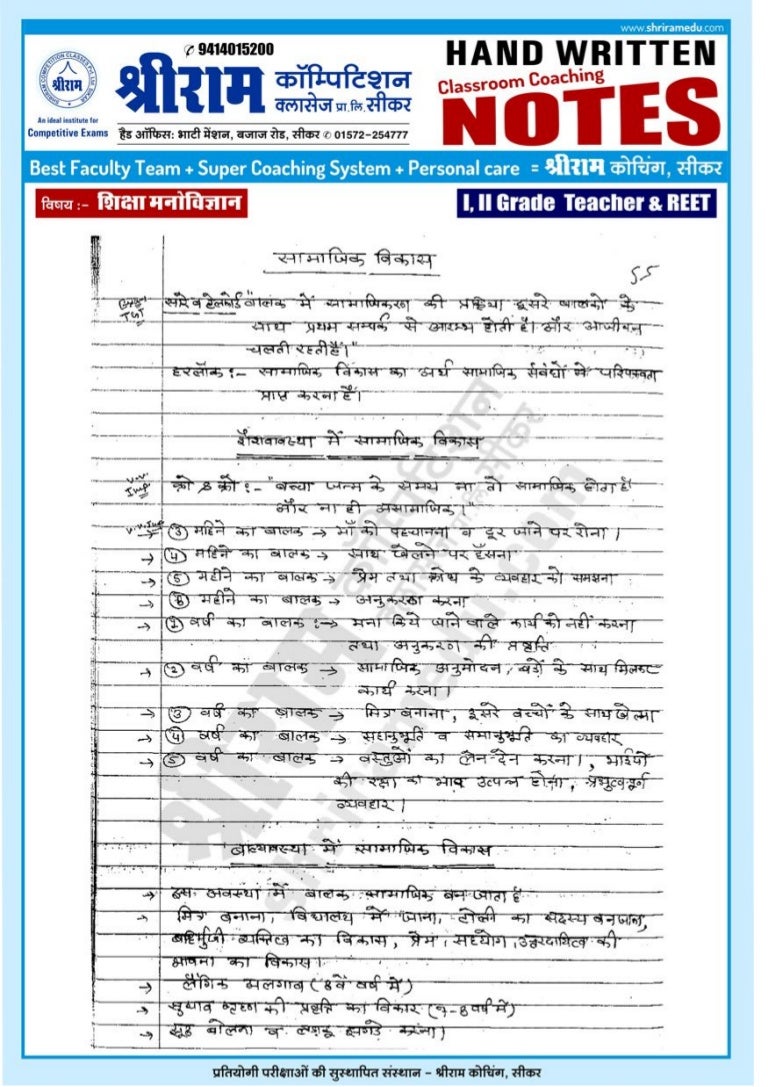 www.shriramedu.com
✆ 9414015200
SHRIRAM COMPETITION CLASSES PVT. LTD. SIKAR
श्रीराम
An ideal institute for
Competitive Exams
श्रीराम कॉम्पिटिशन
क्लासेज प्रा.लि. सीकर
हैड ऑफिस: भाटी मेंशन, बजाज रोड, सीकर ✆ 01572-254777
HAND WRITTEN
Classroom Coaching
NOTES
Best Faculty Team + Super Coaching System + Personal care = श्रीराम कोचिंग, सीकर
विषय :- शिक्षा मनोविज्ञान
I, II Grade Teacher & REET
सामाजिक विकास
55
सोरे व हेलफोर्ड "बालक में सामाजिकरण की प्रक्रिया दूसरे बालकों के
साथ प्रथम सम्पर्क से आरम्भ होती है। और आजीवन
चलती रहती है।"
हरलॉक :- सामाजिक विकास का अर्थ सामाजिक संबंधों में परिपक्वता
प्राप्त करना है।
शैशवावस्था में सामाजिक विकास
v.v. Imp
क्रो & क्रो :- "बच्चा जन्म के समय ना तो सामाजिक होता है
और ना ही असामाजिक।"
v.v.Imp → ③ महिने का बालक → माँ को पहचानना व दूर जाने पर रोना।
→ ④ महिने का बालक → साथ खेलने पर हँसना
→ ⑤ महीने का बालक → प्रेम तथा क्रोध के व्यवहार को समझना
→ ⑥ महीने का बालक → अनुकरण करना
→ ① वर्ष का बालक :→ मना किये जाने वाले कार्य को नहीं करना
तथा अनुकरण की प्रवृति
→ ② वर्ष का बालक → सामाजिक अनुमोदन, बड़ों के साथ मिलकर
कार्य करना।
→ ③ वर्ष का बालक → मित्र बनाना, दूसरे बच्चों के साथ खेलना
→ ④ वर्ष का बालक → सहानुभूति व समानुभूति का व्यवहार
→ ⑤ वर्ष का बालक → वस्तुओं का लेन देन करना।, भाईयों
की रक्षा का भाव उत्पन्न होना, प्रभुत्वपूर्ण
व्यवहार।
बाल्यावस्था में सामाजिक विकास
→ इस अवस्था में बालक सामाजिक बन जाता है
→ मित्र बनाना, विद्यालय में जाना, टोली का सदस्य बन जाना,
बहिर्मुखी व्यक्तित्व का विकास, प्रेम, सहयोग, उत्तरदायित्व की
भावना का विकास।
→ लैंगिक अलगाव (8वें वर्ष में)
→ सुझाव ग्रहण की प्रवृति का विकार (7-8 वर्ष में)
→ झूठ बोलना व लड़ाई झगड़े करना।
प्रतियोगी परीक्षाओं की सुस्थापित संस्थान – श्रीराम कोचिंग, सीकर